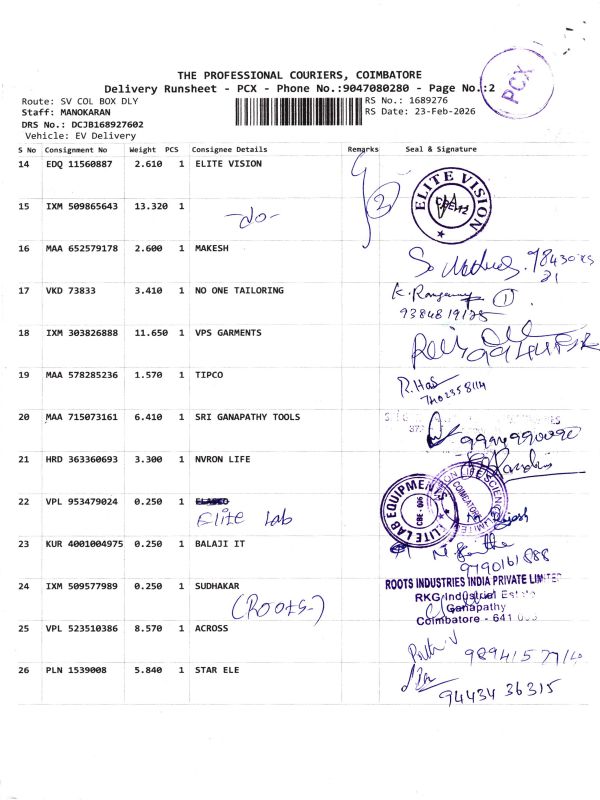 PCX
THE PROFESSIONAL COURIERS, COIMBATORE
Delivery Runsheet - PCX - Phone No.:9047080280 - Page No.:2
Route: SV COL BOX DLY
RS No.: 1689276
Staff: MANOKARAN
RS Date: 23-Feb-2026
DRS No.: DCJB168927602
Vehicle: EV Delivery
S No Consignment No Weight PCS Consignee Details Remarks Seal & Signature
14 EDQ 11560887 2.610 1 ELITE VISION 2 ELITE VISION
15 IXM 509865643 13.320 1 -do-
16 MAA 652579178 2.600 1 MAKESH
17 VKD 73833 3.410 1 NO ONE TAILORING 1
9384819125
18 IXM 303826888 11.650 1 VPS GARMENTS
19 MAA 578285236 1.570 1 TIPCO R.Has
7402358114
20 MAA 715073161 6.410 1 SRI GANAPATHY TOOLS
21 HRD 363360693 3.300 1 NVRON LIFE
22 VPL 953479024 0.250 1 Elite Lab ELITE LAB EQUIPMENTS
23 KUR 4001004975 0.250 1 BALAJI IT
9790161888
24 IXM 509577989 0.250 1 SUDHAKAR
(Roots-)
ROOTS INDUSTRIES INDIA PRIVATE LIMITED
RKG Industrial Estate
Ganapathy
Coimbatore - 641
25 VPL 523510386 8.570 1 ACROSS
26 PLN 1539008 5.840 1 STAR ELE
94434 36315